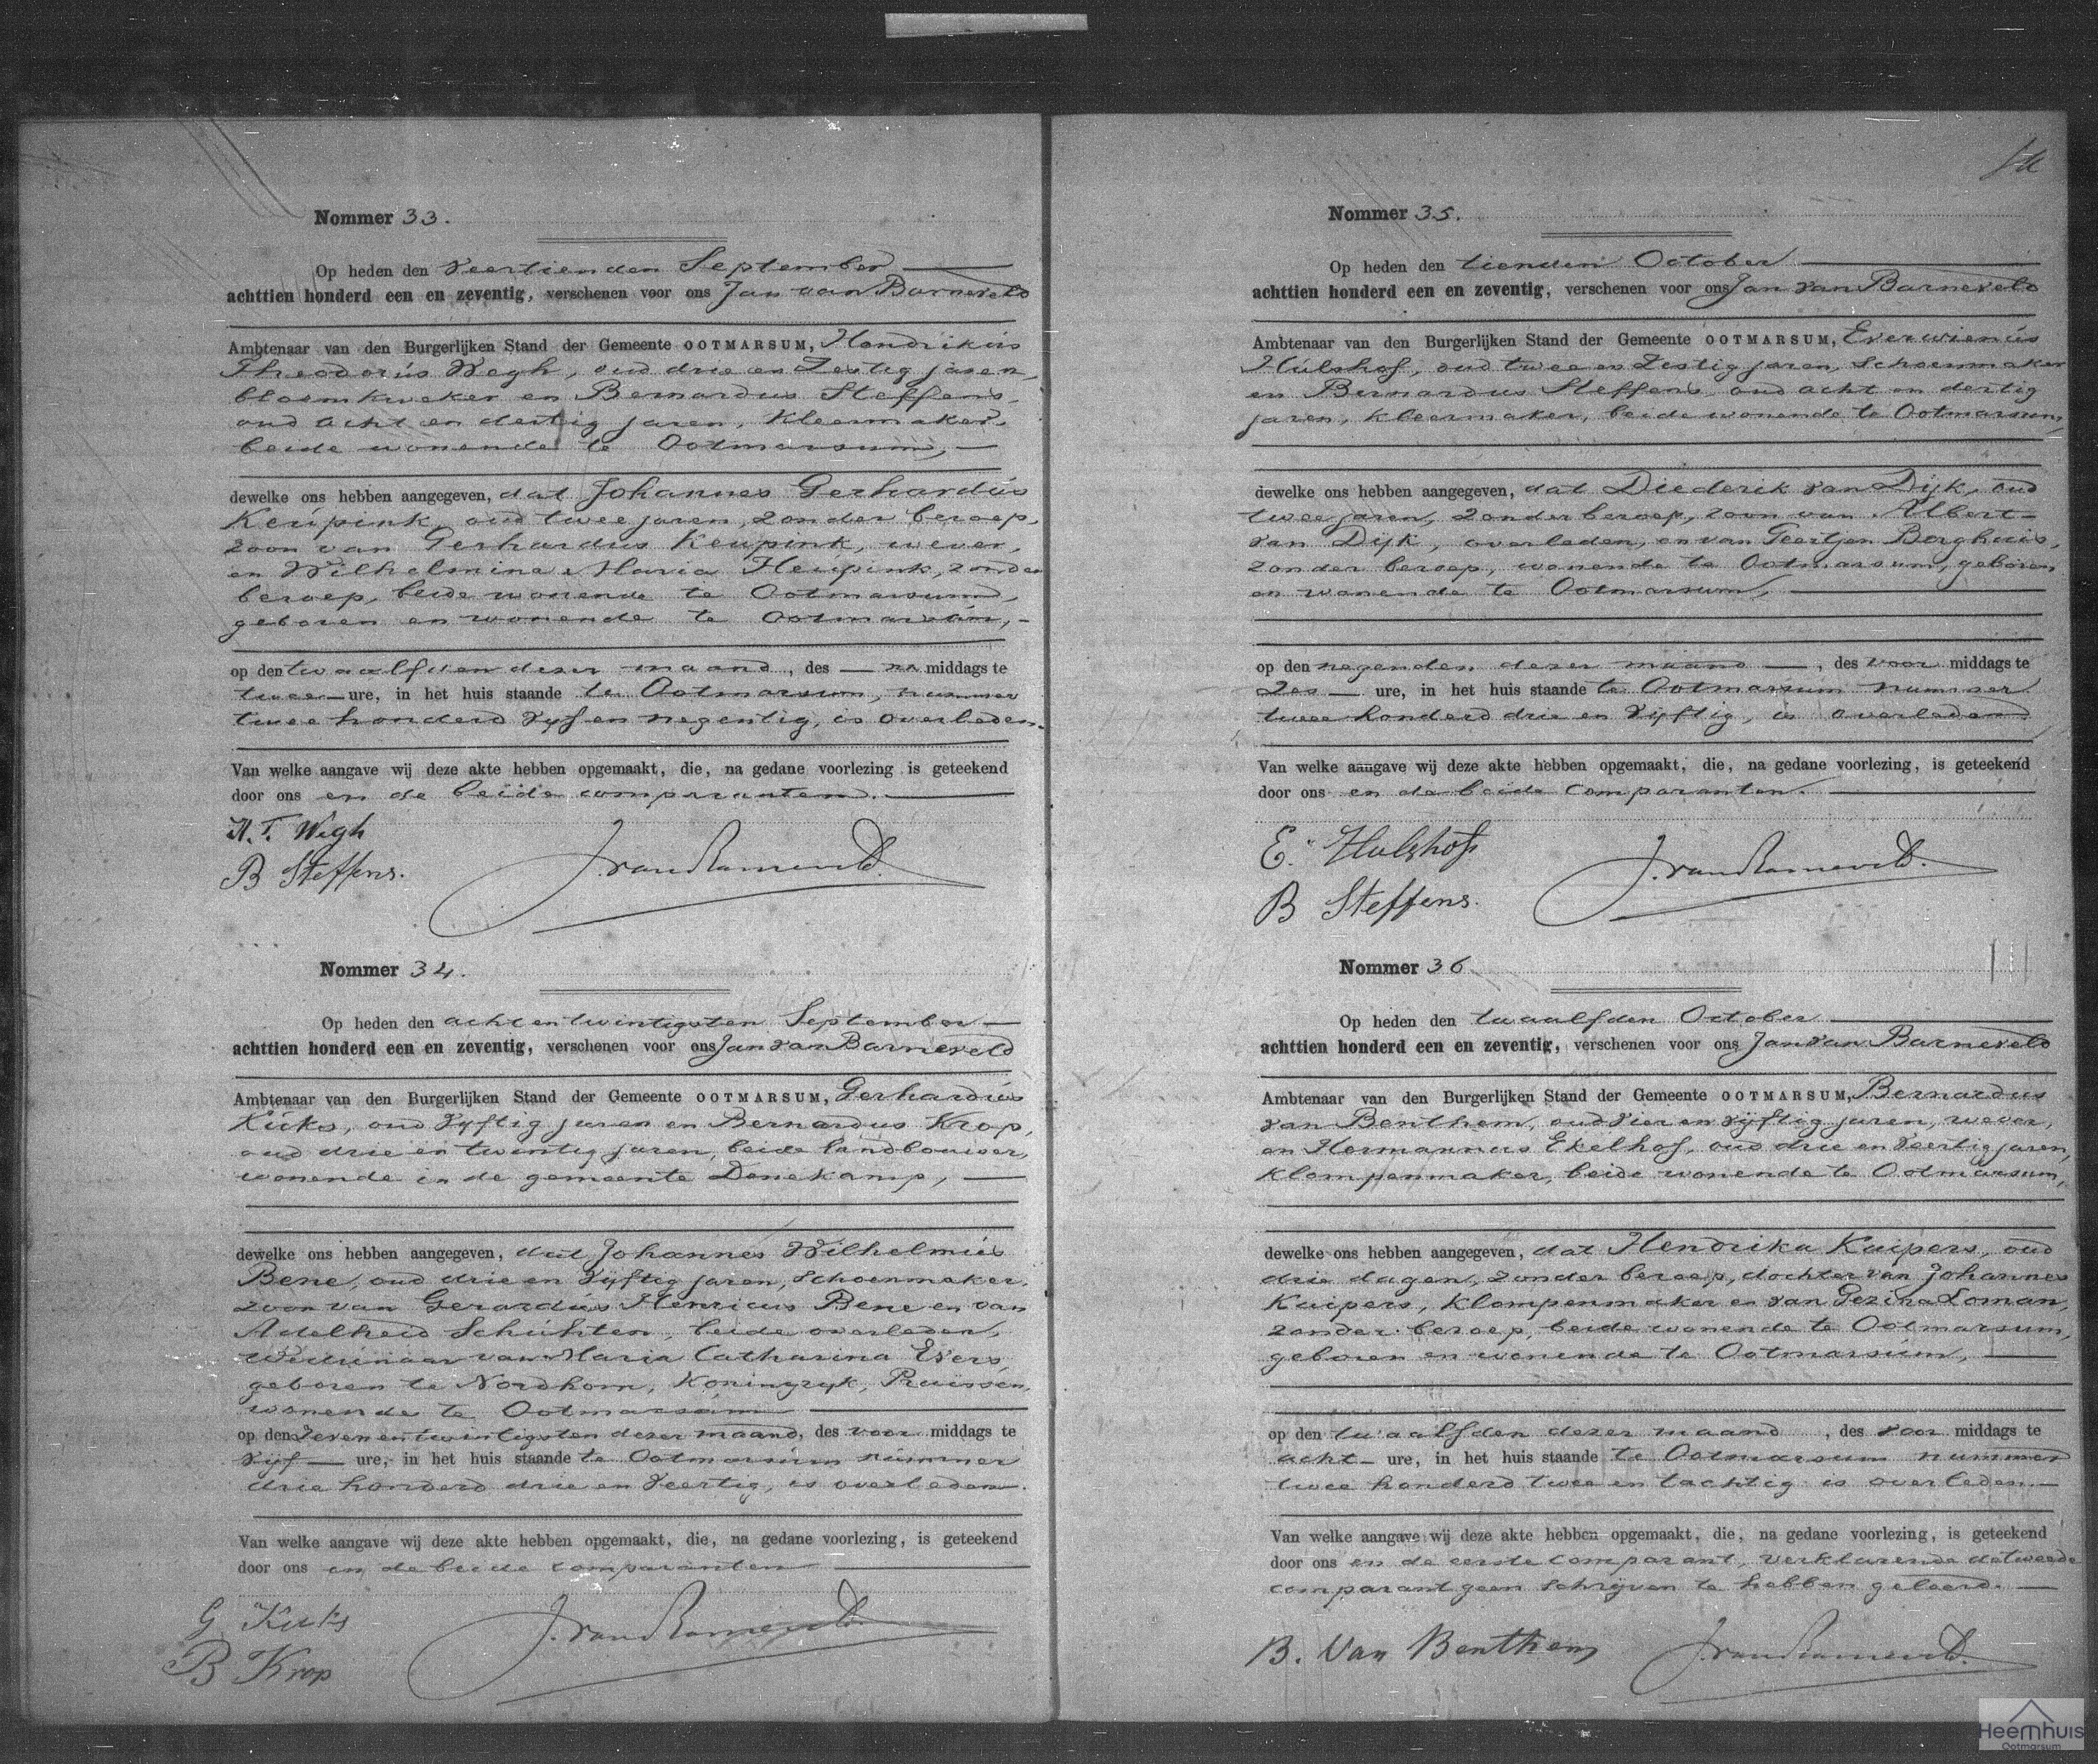 Nommer 33.
Op heden den veertienden September
achttien honderd een en zeventig, verschenen voor ons Jan van Barneveld
Ambtenaar van den Burgerlijken Stand der Gemeente OOTMARSUM, Hendrikus
Theodorus Wegh, oud drie en zestig jaren,
bloemkweker en Bernardus Steffens,
oud acht en dertig jaren, kleermaker,
beide wonende te Ootmarsum,
dewelke ons hebben aangegeven, dat Johannes Gerhardus
Keupink, oud twee jaren, zonder beroep,
zoon van Gerhardus Keupink, wever,
en Wilhelmina Maria Heupink, zonder
beroep, beide wonende te Ootmarsum,
geboren en wonende te Ootmarsum,
op den twaalfden dezer maand, des na middags te
twee ure, in het huis staande te Ootmarsum, nummer
twee honderd vijf en negentig, is overleden.
Van welke aangave wij deze akte hebben opgemaakt, die, na gedane voorlezing is geteekend
door ons en de beide comparanten.
H.T. Wegh
B Steffens.
J. van Barneveld.
Nommer 34.
Op heden den achtentwintigsten September
achttien honderd een en zeventig, verschenen voor ons Jan van Barneveld
Ambtenaar van den Burgerlijken Stand der Gemeente OOTMARSUM, Gerhardus
Kuks, oud vijftig jaren en Bernardus Krop,
oud drie en twintig jaren, beide landbouwer,
wonende in de gemeente Denekamp,
dewelke ons hebben aangegeven, dat Johannes Wilhelmus
Bene, oud drie en vijftig jaren, schoenmaker,
zoon van Gerardus Henricus Bene en van
Adelheid Schuhten, beide overleden,
weduwnaar van Maria Catharina Evers
geboren te Nordhorn, Koningrijk, Pruissen,
wonende te Ootmarsum
op den zevenentwintigsten dezer maand, des voor middags te
vijf ure, in het huis staande te Ootmarsum nummer
drie honderd drie en veertig, is overleden.
Van welke aangave wij deze akte hebben opgemaakt, die, na gedane voorlezing, is geteekend
door ons en de beide comparanten
G Kuks
B Krop
J. van Barneveld.
Nommer 35.
Op heden den tienden October
achttien honderd een en zeventig, verschenen voor ons Jan van Barneveld
Ambtenaar van den Burgerlijken Stand der Gemeente OOTMARSUM, Everwienus
Hulshof, oud twee en zestig jaren, schoenmaker
en Bernardus Steffens, oud acht en dertig
jaren, kleermaker, beide wonende te Ootmarsum,
dewelke ons hebben aangegeven, dat Diederik van Dijk, oud
twee jaren, zonder beroep, zoon van Albert
van Dijk, overleden, en van Geertjen Borghuis,
zonder beroep, wonende te Ootmarsum, geboren
en wonende te Ootmarsum,
op den negenden dezer maand, des voor middags te
zes ure, in het huis staande te Ootmarsum nummer
twee honderd drie en vijftig, is overleden
Van welke aangave wij deze akte hebben opgemaakt, die, na gedane voorlezing, is geteekend
door ons en de beide comparanten.
E. Hulshof
B Steffens.
J. van Barneveld.
Nommer 36
Op heden den twaalfden October
achttien honderd een en zeventig, verschenen voor ons Jan van Barneveld
Ambtenaar van den Burgerlijken Stand der Gemeente OOTMARSUM, Bernardus
van Benthem, oud vier en vijftig jaren, wever,
en Hermannus Ekelhof, oud drie en veertig jaren,
klompenmaker, beide wonende te Ootmarsum,
dewelke ons hebben aangegeven, dat Hendrika Kuipers, oud
drie dagen, zonder beroep, dochter van Johannes
Kuipers, klompenmaker en van Gezina Loman,
zonder beroep, beide wonende te Ootmarsum,
geboren en wonende te Ootmarsum,
op den twaalfden dezer maand, des voor middags te
acht ure, in het huis staande te Ootmarsum nummer
twee honderd twee en tachtig is overleden.
Van welke aangave wij deze akte hebben opgemaakt, die, na gedane voorlezing, is geteekend
door ons en de eerste comparant, verklarende de tweede
comparant geen schrijven te hebben geleerd.
B. Van Benthem
J. van Barneveld.
Heemhuis
Ootmarsum